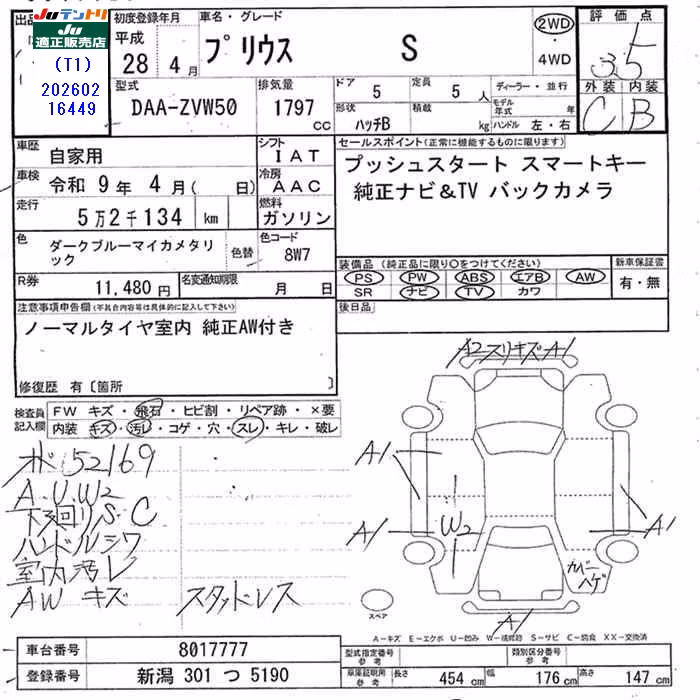 出品
Juテントリ
Ju
適正販売店
(T1)
202602
16449
初度登録年月
平成
28 年 4 月
車名・グレード
プリウス S
2WD
・
4WD
評価点
3.5
外装 内装
C B
型式
DAA-ZVW50
排気量
1797
cc
ドア
5
定員
5 人
ディーラー・並行
形状
ハッチB
積載
kg
モデル年式 年
ハンドル 左・右
車歴
自家用
シフト
IAT
車検
令和 9年 4月( 日)
冷房
AAC
走行
5万2千134 km
燃料
ガソリン
色
ダークブルーマイカメタリ
ック
色替
色コード
8W7
R券
11,480円
名変通知期限
月 日
セールスポイント(正常に機能するものに限ります)
プッシュスタート スマートキー
純正ナビ&TV バックカメラ
装備品 (純正品に限り○をつけてください)
PS PW ABS エアB AW
SR ナビ TV カワ
新車保証書
有・無
後日品
注意事項申告欄(不具合内容等は具体的に記入して下さい)
ノーマルタイヤ室内 純正AW付き
修復歴 有〔箇所 〕
検査員
記入欄
FW キズ・飛石・ヒビ割・リペア跡・×要
内装 キズ・汚レ・コゲ・穴・スレ・キレ・破レ
オド 52169
A.U.W2
下回りS.C
ハンドルシワ
室内汚レ
AW キズ スタッドレス
A2スリキズA1
A1
A1
W2
A1
カバーハゲ
A1
スペア
A-キズ E-エクボ U-凹み W-補修跡 S-サビ C-腐食 XX-交換済
車台番号
8017777
登録番号
新潟 301 つ 5190
型式指定番号
参考
類別区分番号
参考
車庫証明用
参考
長さ
454 cm
幅
176 cm
高さ
147 cm